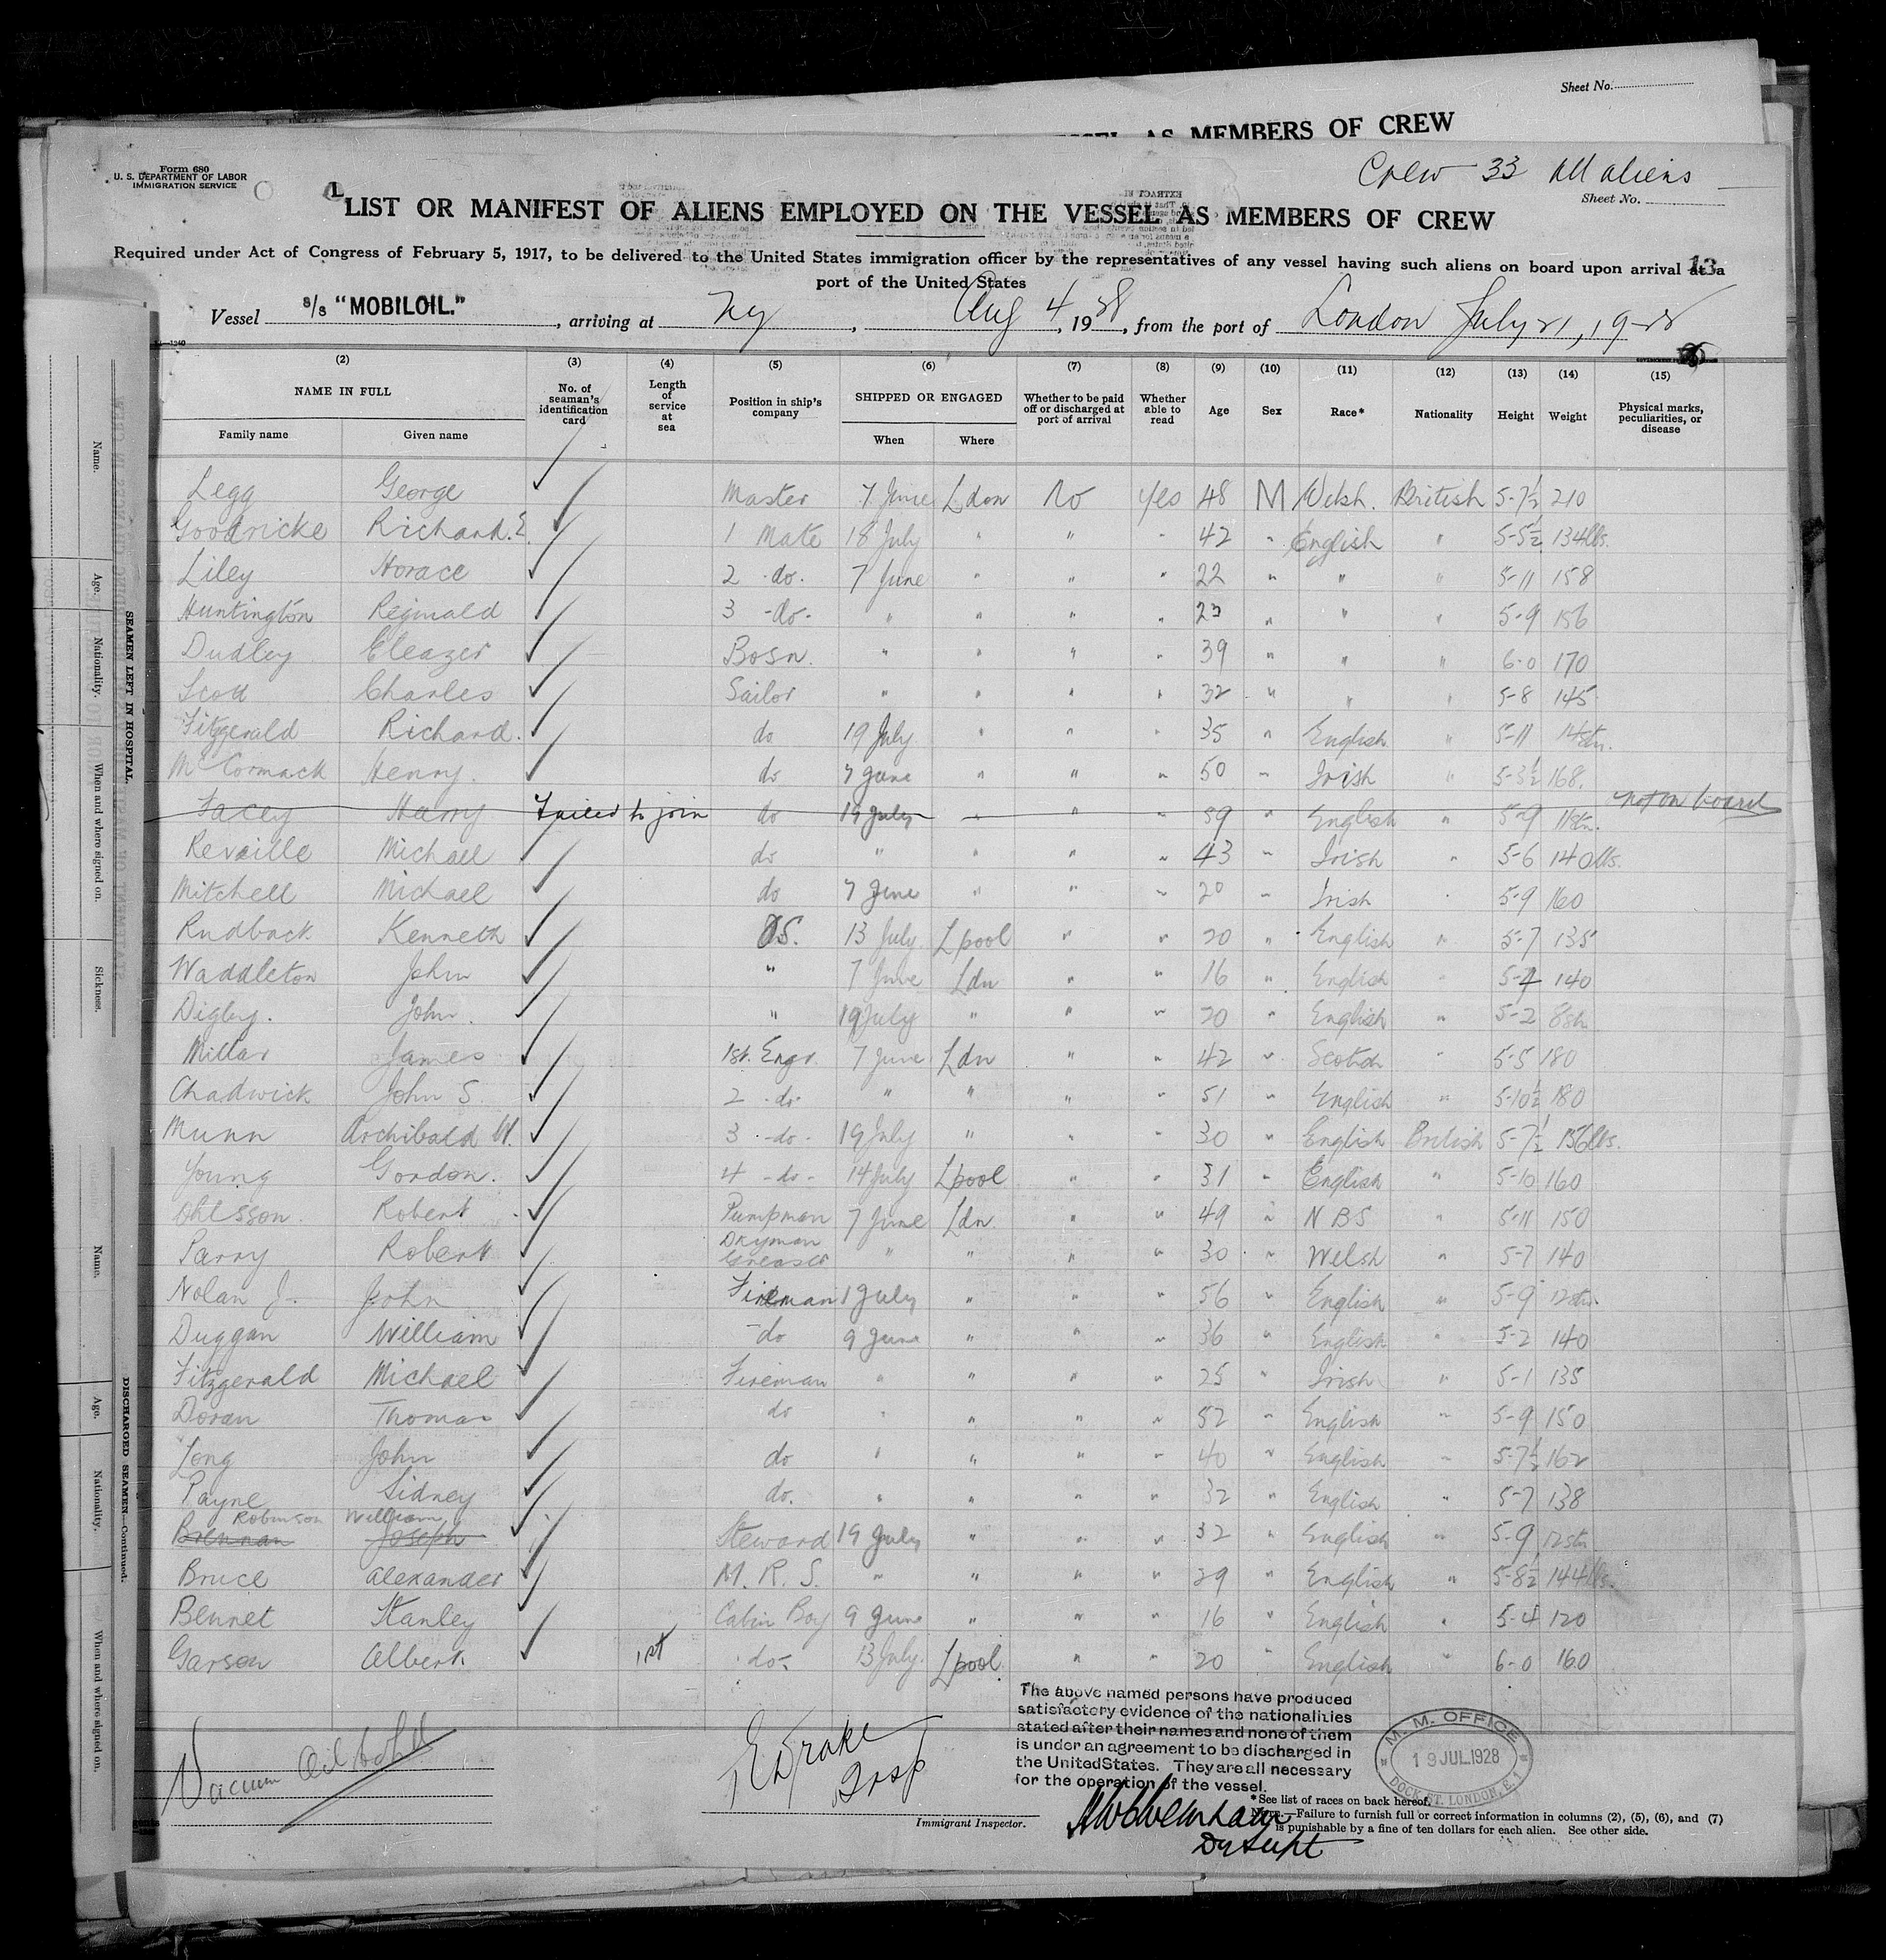 Sheet No.
VESSEL AS MEMBERS OF CREW
Form 680
U. S. DEPARTMENT OF LABOR
IMMIGRATION SERVICE
Crew 33 all aliens
Sheet No.
LIST OR MANIFEST OF ALIENS EMPLOYED ON THE VESSEL AS MEMBERS OF CREW
Required under Act of Congress of February 5, 1917, to be delivered to the United States immigration officer by the representatives of any vessel having such aliens on board upon arrival at a
port of the United States
13
Vessel s/s "MOBILOIL." , arriving at NY , Aug 4 , 1928 , from the port of London July 21, 1928
(2) (3) (4) (5) (6) (7) (8) (9) (10) (11) (12) (13) (14) (15)
NAME IN FULL No. of seaman's identification card Length of service at sea Position in ship's company SHIPPED OR ENGAGED Whether to be paid off or discharged at port of arrival Whether able to read Age Sex Race* Nationality Height Weight Physical marks, peculiarities, or disease
Family name Given name When Where
Legg George Master 7 June Ldon No Yes 48 M Welsh. British 5-7½ 210
Goodricke Richard. E. 1 Mate 18 July " " " 42 " English " 5-5½ 134lbs.
Liley Horace 2 -do- 7 June " " " 22 " " " 5-11 158
Huntington Reginald 3 -do- " " " " 23 " " " 5-9 156
Dudley Eleazer Bosn. " " " " 39 " " " 6-0 170
Scott Charles Sailor " " " " 32 " " " 5-8 145
Fitzgerald Richard. do 19 July " " " 35 " English " 5-11 14stn.
McCormack Henry. do 7 June " " " 50 " Irish " 5-3½ 168.
Facey Harry Failed to join do 19 July " " " 39 " English " 5-9 11stn. not on board
Revaille Michael do " " " " 43 " Irish " 5-6 140lbs.
Mitchell Michael do 7 June " " " 20 " Irish " 5-9 160
Rudback Kenneth OS. 13 July Lpool " " 20 " English " 5-7 135
Waddleton John " 7 June Ldn " " 16 " English " 5-4 140
Digby. John. " 19 July " " " 20 " English " 5-2 8stn
Millar James 1st. Engr. 7 June Ldn " " 42 " Scotch " 5-5 180
Chadwick John S. 2 -do- " " " " 51 " English " 5-10½ 180
Munn Archibald W. 3 -do- 19 July " " " 30 " English British 5-7½ 156lbs.
Young Gordon. 4 -do- 14 July Lpool " " 31 " English " 5-10 160
Ohlsson. Robert Pumpman 7 June Ldn. " " 49 " N B S " 5-11 150
Parry Robert Dkyman Greaser " " " " 30 " Welsh " 5-7 140
Nolan J. John Fireman 1 July " " " 56 " English " 5-9 12stn.
Duggan William do 9 June " " " 36 " English " 5-2 140
Fitzgerald Michael Fireman " " " " 25 " Irish " 5-1 135
Doran Thomas do " " " " 52 " English " 5-9 150
Long John do " " " " 40 " English " 5-7½ 162
Payne Sidney do. " " " " 32 " English " 5-7 138
Robinson William
Brennan Joseph Steward 19 July " " " 32 " English " 5-9 12stn
Bruce Alexander M. R. S. " " " " 29 " English " 5-8½ 144lbs.
Bennet Stanley Cabin Boy 9 June " " " 16 " English " 5-4 120
Garson Albert. 1st -do- 13 July. Lpool " " 20 " English " 6-0 160
The above named persons have produced
satisfactory evidence of the nationalities
stated after their names and none of them
is under an agreement to be discharged in
the United States. They are all necessary
for the operation of the vessel.
M. M. OFFICE
19 JUL 1928
DOCK ST. LONDON, E. 1
Vacuum Oil
Drake
Insp
Immigrant Inspector.
Dy Supt
*See list of races on back hereof.
NOTE.—Failure to furnish full or correct information in columns (2), (5), (6), and (7)
is punishable by a fine of ten dollars for each alien. See other side.
SEAMEN LEFT IN HOSPITAL.
Name. Age. Nationality. When and where signed on. Sickness.
DISCHARGED SEAMEN—Continued.
Name. Age. Nationality. When and where signed on.